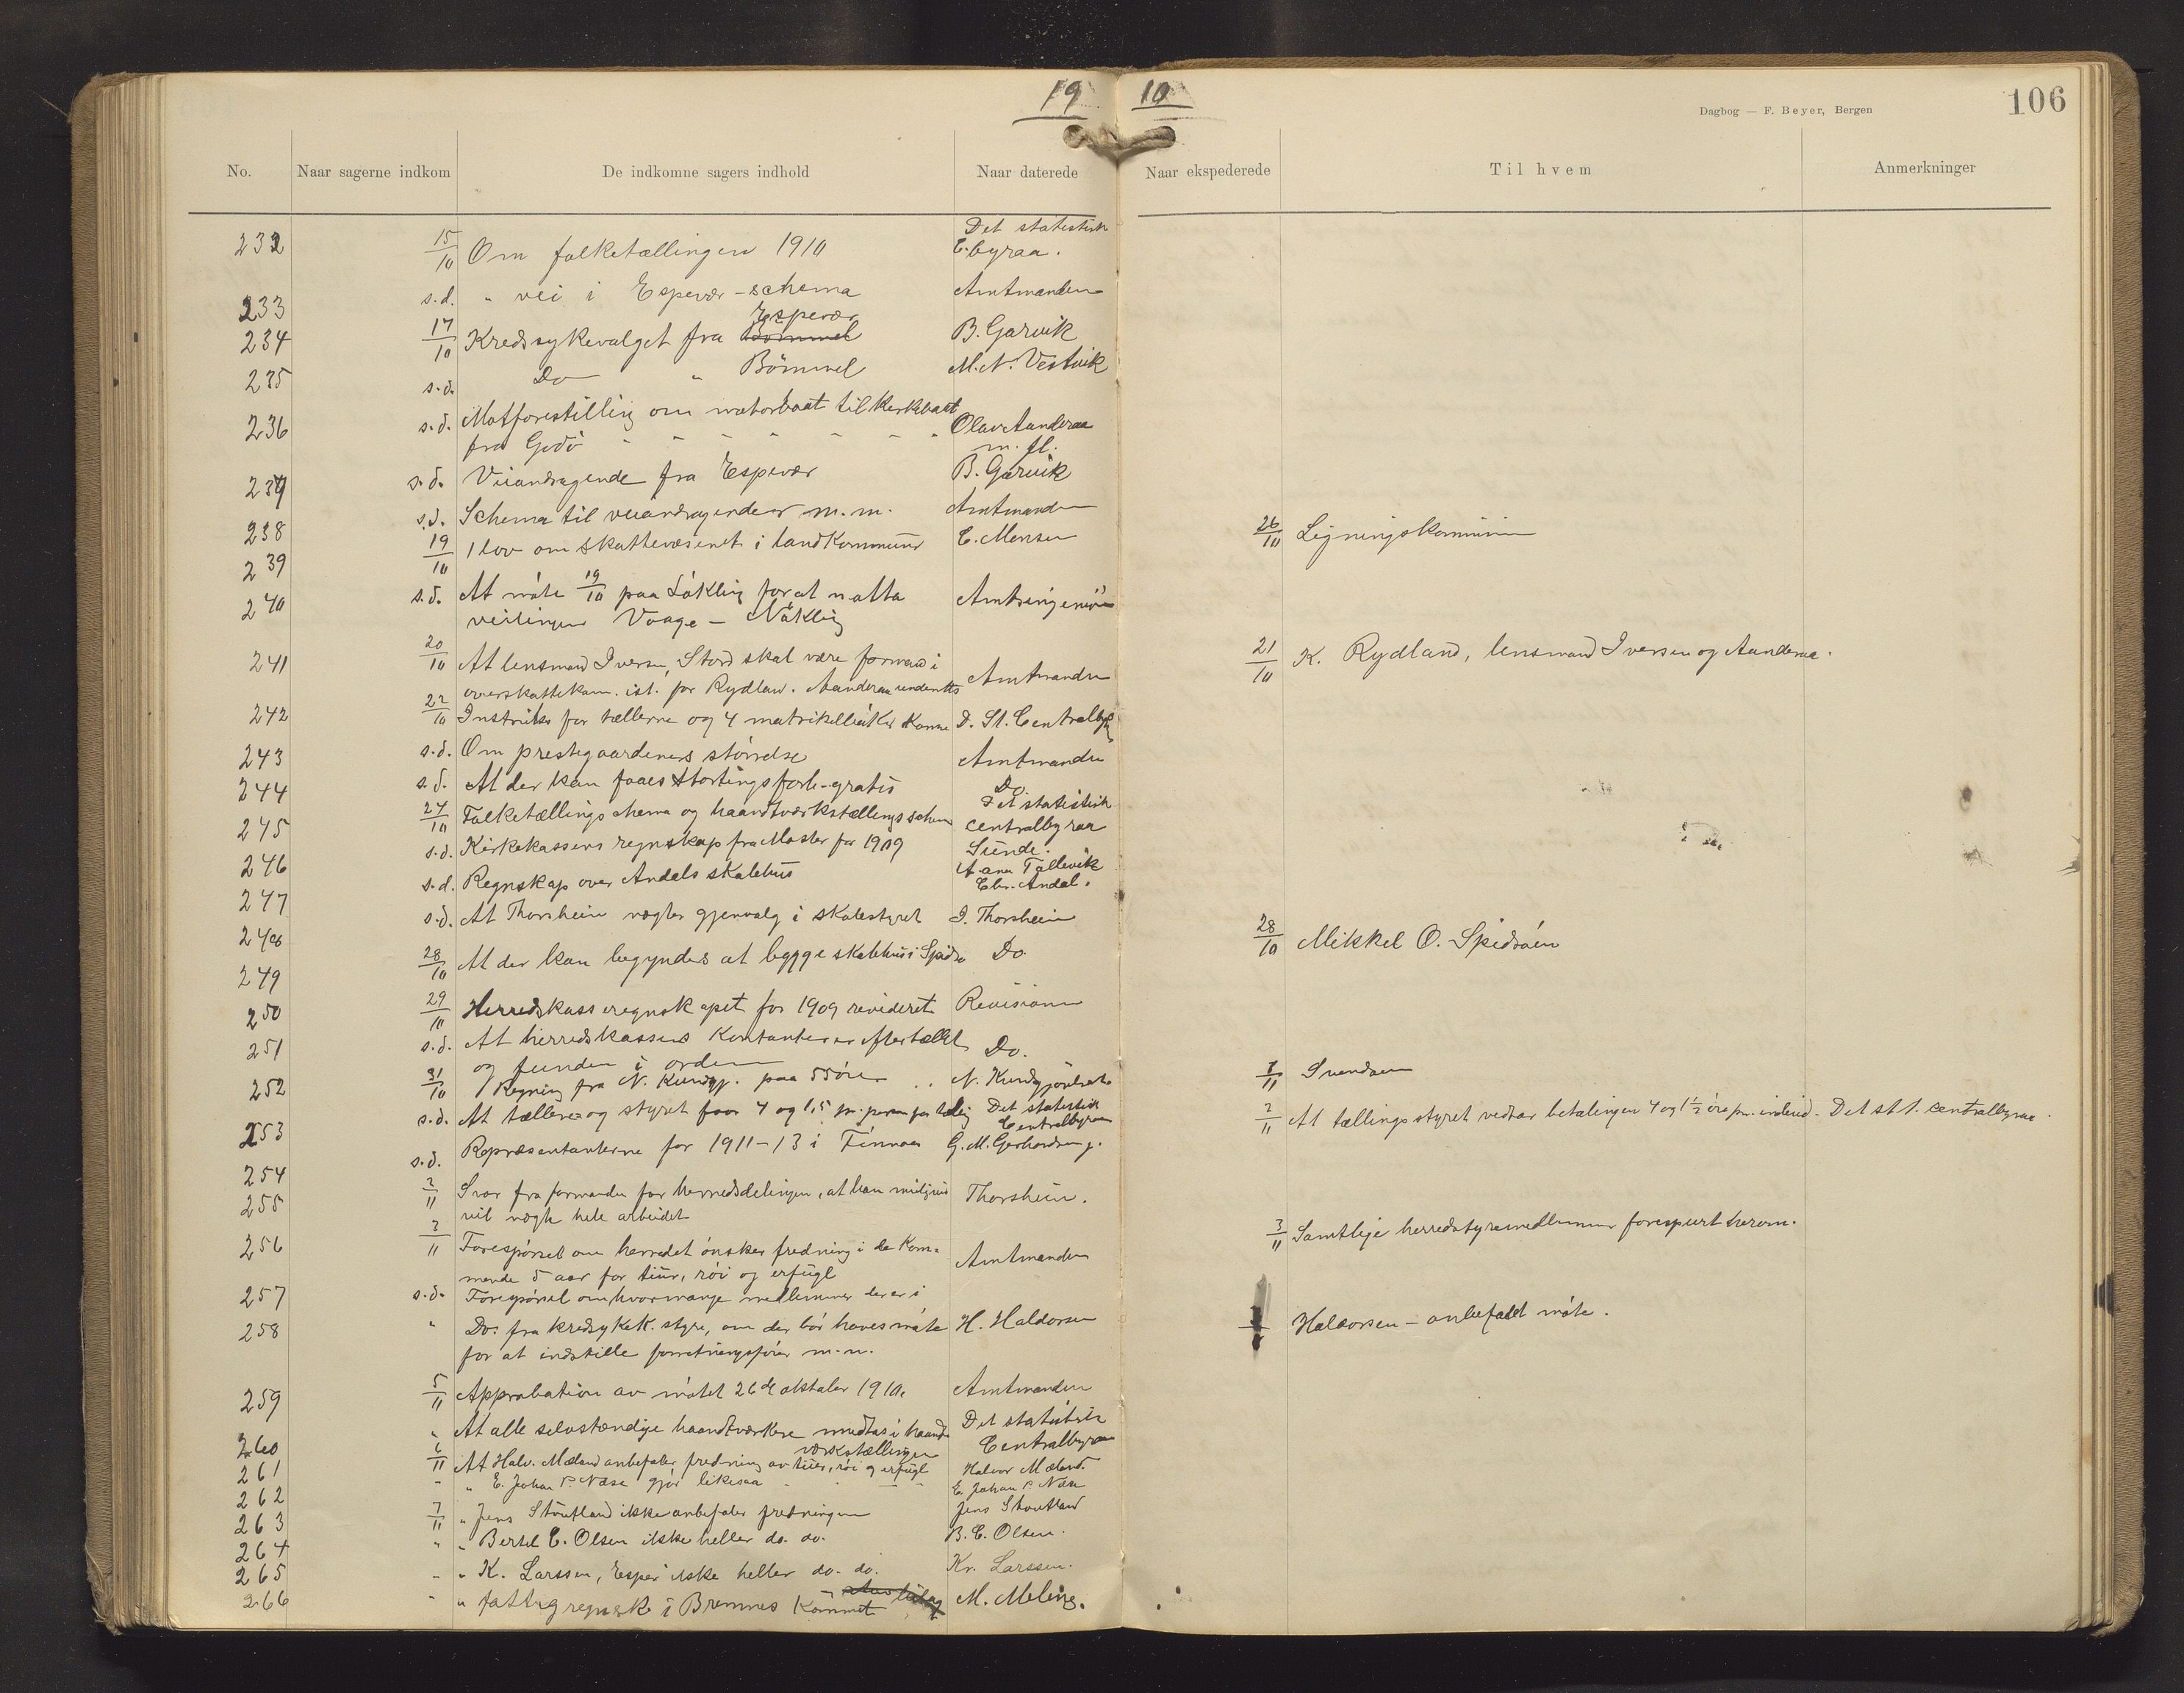 19 10
Dagbog — F. Beyer, Bergen
106
No. Naar sagerne indkom De indkomne sagers indhold Naar daterede Naar ekspederede Til hvem Anmerkninger
232 15/10 Om folketællingen 1910 Det statistisk C. byraa.
233 s.d. " vei i Espevær - schema Amtmanden
234 17/10 Kredssykevalget fra Bömmel Espevær B. Garvik
235 s.d. Do " Bömmel M. N. Vestvik
236 s.d. Motforestilling om motorbaat til Kirkebaat Olav Aanderaa
fra Godö - - - - - - - m. fl.
237 s.d. Veiandragende fra Espevær B. Garvik
238 s.d. Schema til veiandragender m.m. Amtmanden
239 19/10 1 lov om skattevæsenet i landkommuner C. Monsen 26/10 Ligningskommisionen
240 s.d. At möte 19/10 paa Lökling for at Amtsingeniör
veilinjen Vaage - Nökling
241 20/10 At lensmand Iversen, Stord skal være formand i Amtmanden 21/10 K. Rydland, lensmand Iversen og Aanderaa.
overskattekom. ist. for Rydland. Aanderaa underrettes
242 22/10 Instruks for tællerne og 4 matrikelböker D. St. Centralby
243 s.d. Om prestegaardenes störrelse Amtmanden
244 s.d. At der kan faaes Stortingsforh. gratis Do.
245 24/10 Folketællingschema og haandtværkstællings schem Det statistisk
centralbyraa
246 s.d. Kirkekassens regnskap fra Moster for 1909 Sunde.
247 s.d. Regnskap over Andals skolehus
Chr. Andal.
248 s.d. At Thorsheim nægter gjenvalg i skolestyret I. Thorsheim
249 28/10 At der kan begyndes at bygge skolehus i Spidsö Do. 28/10 Mikkel O. Spidsöen
250 29/10 Herredskasseregnskapet for 1909 revideret Revisionen
251 s.d. At herredskassens Kontanter er eftertællet Do.
og funden i orden
252 31/10 1 Regning fra N. Kundgj. paa 55 öre .. N. Kundgjörelser 1/11 Svendsen
253 s.d. At tællere og styret faar 4 og 1,5 pr. person for tælling Det statistisk 2/11 At tællingsstyret vedtar betalingen 4 og 1½ öre pr. individ. - Det st. centralbyraa.
Centralbyraa
254 s.d. Repræsentanterne for 1911-13 i Finnaas G. M. Gerhardsen
255 2/11 Svar fra formanden for herredsdelingen, at han Thorsheim.
vil nægte hele arbeidet
256 2/11 Forespörsel om herredet önsker fredning i de kom- Amtmanden 3/11 Samtlige herredstyremedlemmer forespurt herom.
mende 5 aar for tiur, röi og erfugl
257 s.d. Forespörsel om hvormange medlemmer der er i
258 " Do. fra kredssykek. styre, om der bör haves möte H. Haldorsen Haldorsen - anbefalt möte.
for at indstille forretningsförer m.m.
259 5/11 Approbation av mötet 26de oktober 1910. Amtmanden
260 " At alle selvstændige haandtværkere medtas i haand- Det statistisk
værkstællingen Centralbyraa
261 6/11 At Halv. Mæland anbefaler fredning av tiur, röi og erfugl Halvor Mæland.
262 - " E. Johan P. Næse gjör likesaa - - - E. Johan P. Næse
263 7/11 " Jens Stoutland ikke anbefaler fredningen Jens Stoutland
264 " " Bertel C. Olsen ikke heller do. do. B. C. Olsen.
265 - " K. Larssen, Espev. ikke heller do. do. Kr. Larssen.
266 - " fattigregnsk. i Bremnes kommet M. Meling.